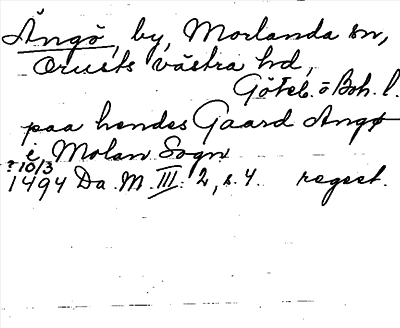 Ängö, by, Morlanda sn,
Orusts västra hd,
Göteb. o Boh. l.
paa hendes Gaard Angø
i Molan Sogn
? 10/3
1494 Da. M. III. 2, s. 4. regest.